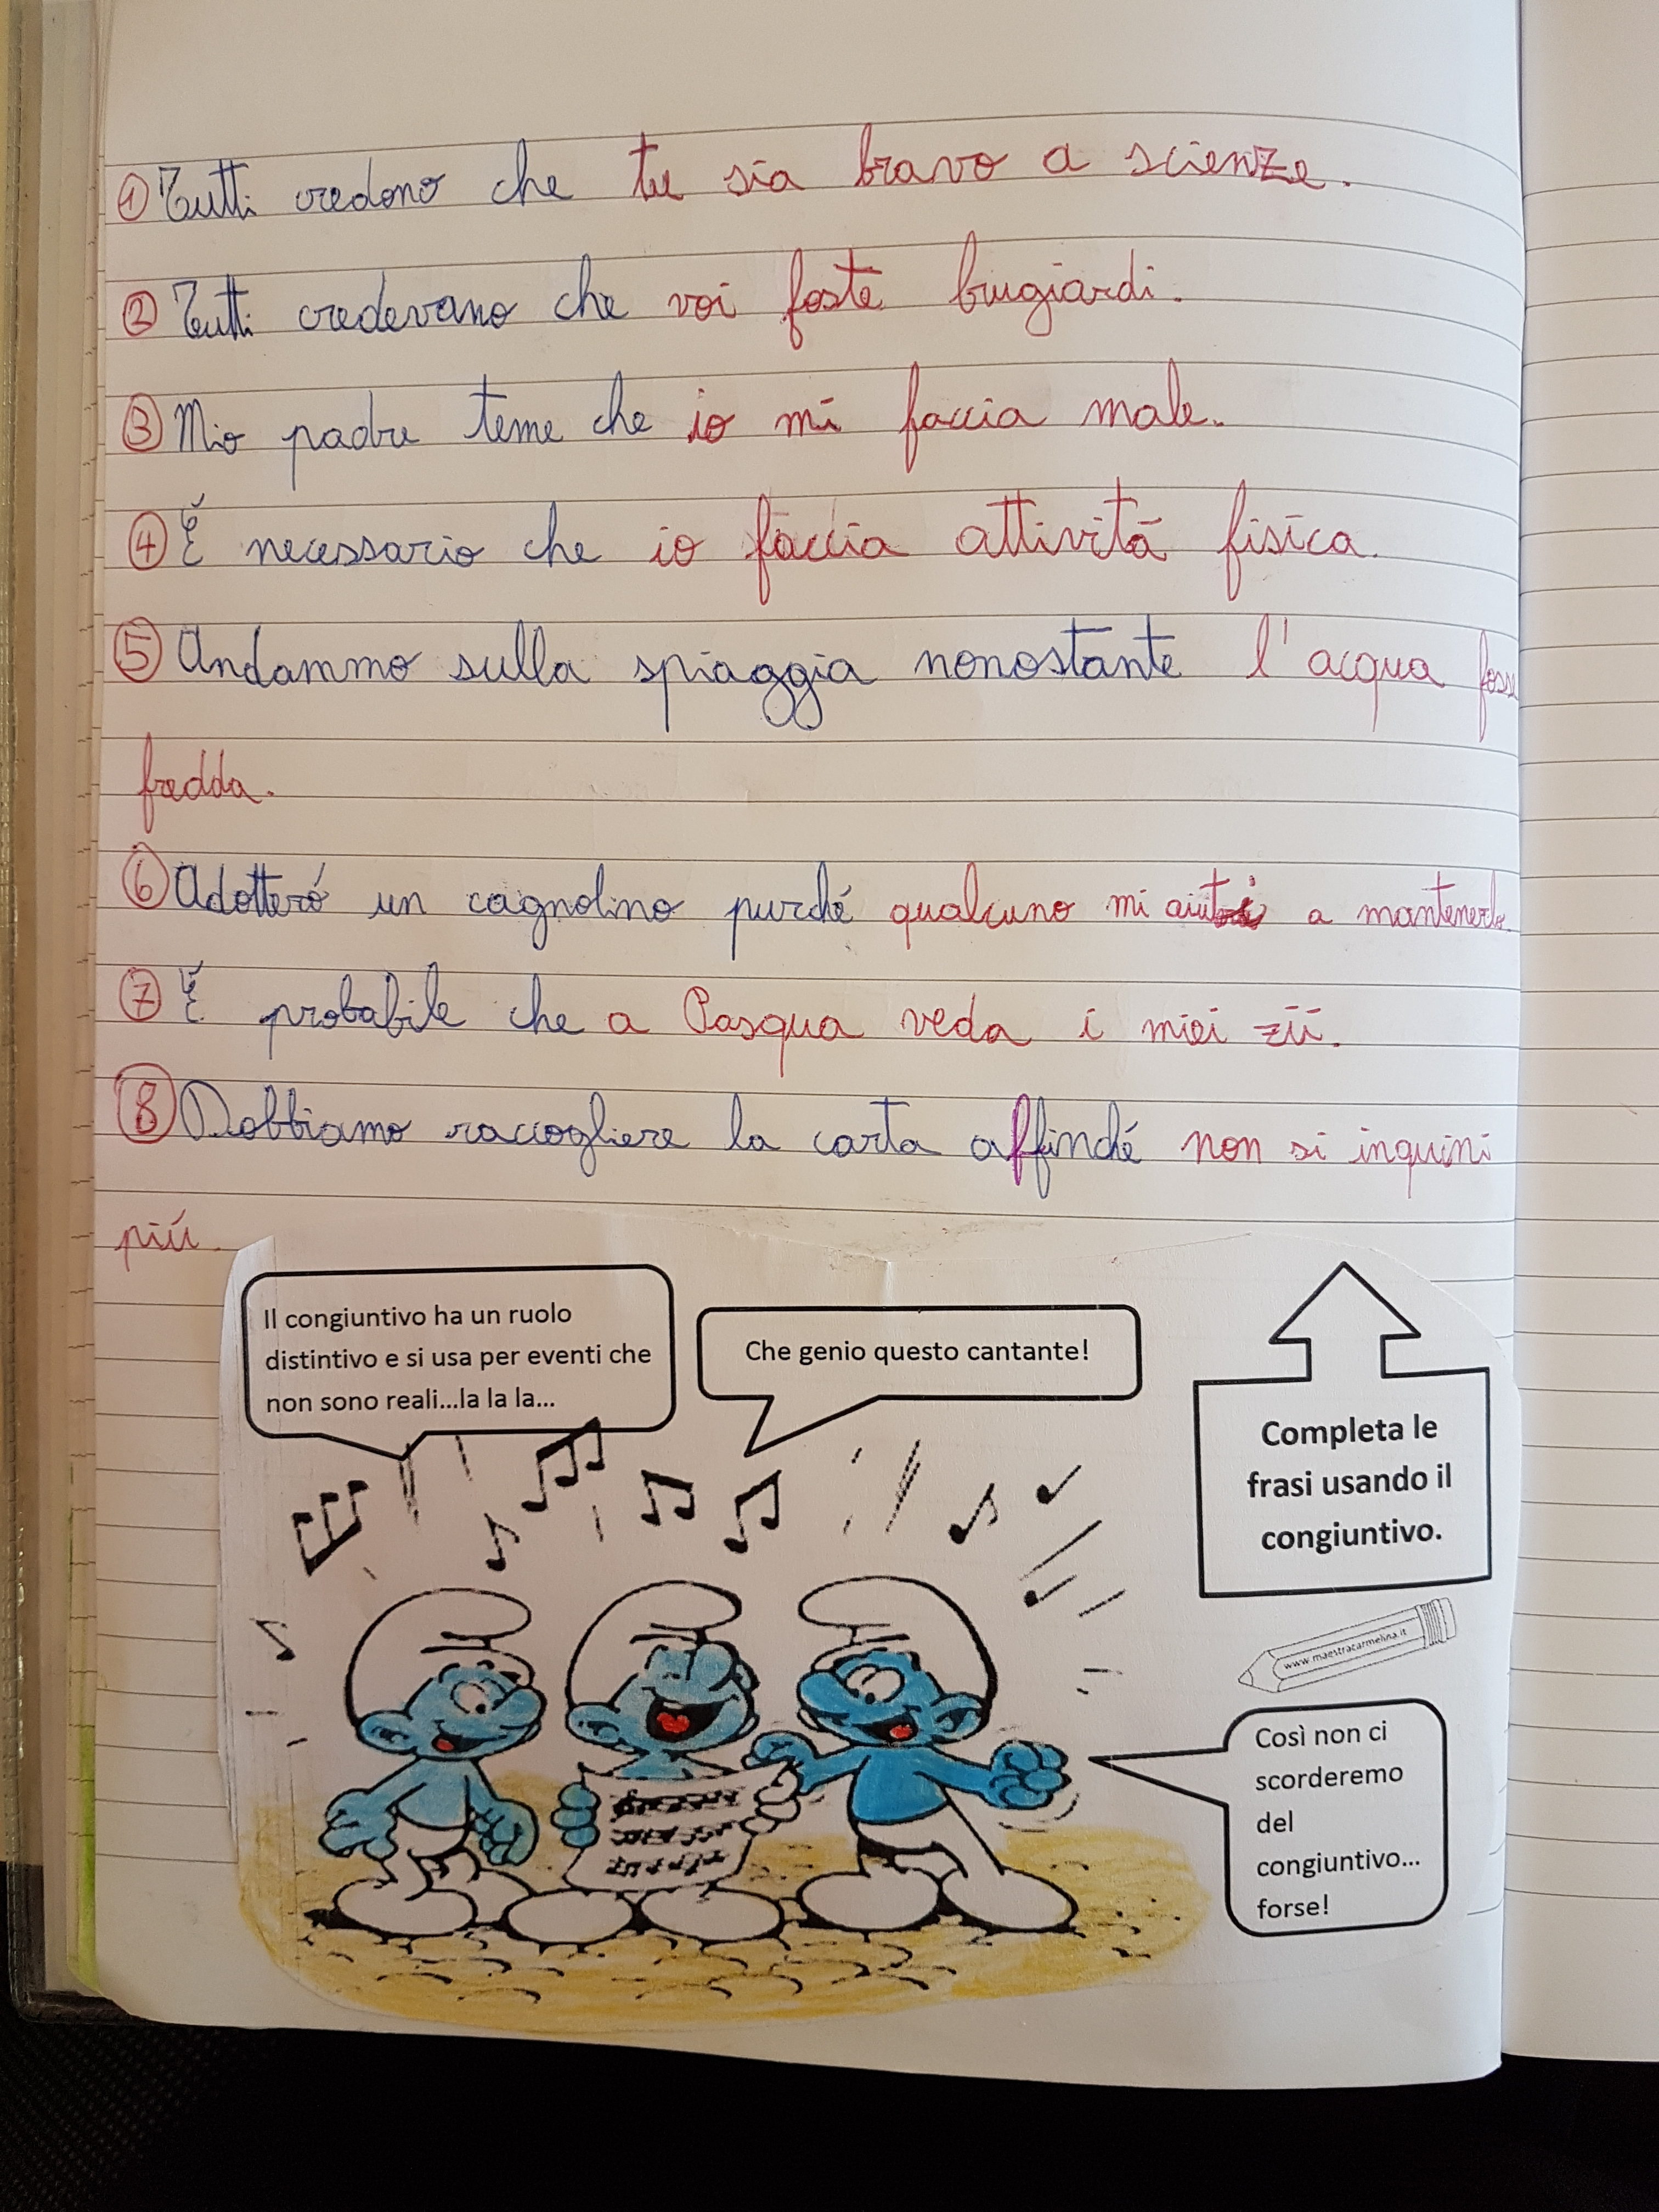 ① Tutti credono che tu sia bravo a scienze.
② Tutti credevano che voi foste bugiardi.
③ Mio padre teme che io mi faccia male.
④ É necessario che io faccia attività fisica.
⑤ Andammo sulla spiaggia nonostante l'acqua fosse
fredda.
⑥ Adotteró un cagnolino purché qualcuno mi aiuti a mantenerlo.
⑦ É probabile che a Pasqua veda i miei zii.
⑧ Dobbiamo raccogliere la carta affinché non si inquini
piú.
Il congiuntivo ha un ruolo
distintivo e si usa per eventi che
non sono reali...la la la...
Che genio questo cantante!
Completa le
frasi usando il
congiuntivo.
www.maestracarmelina.it
Così non ci
scorderemo
del
congiuntivo...
forse!